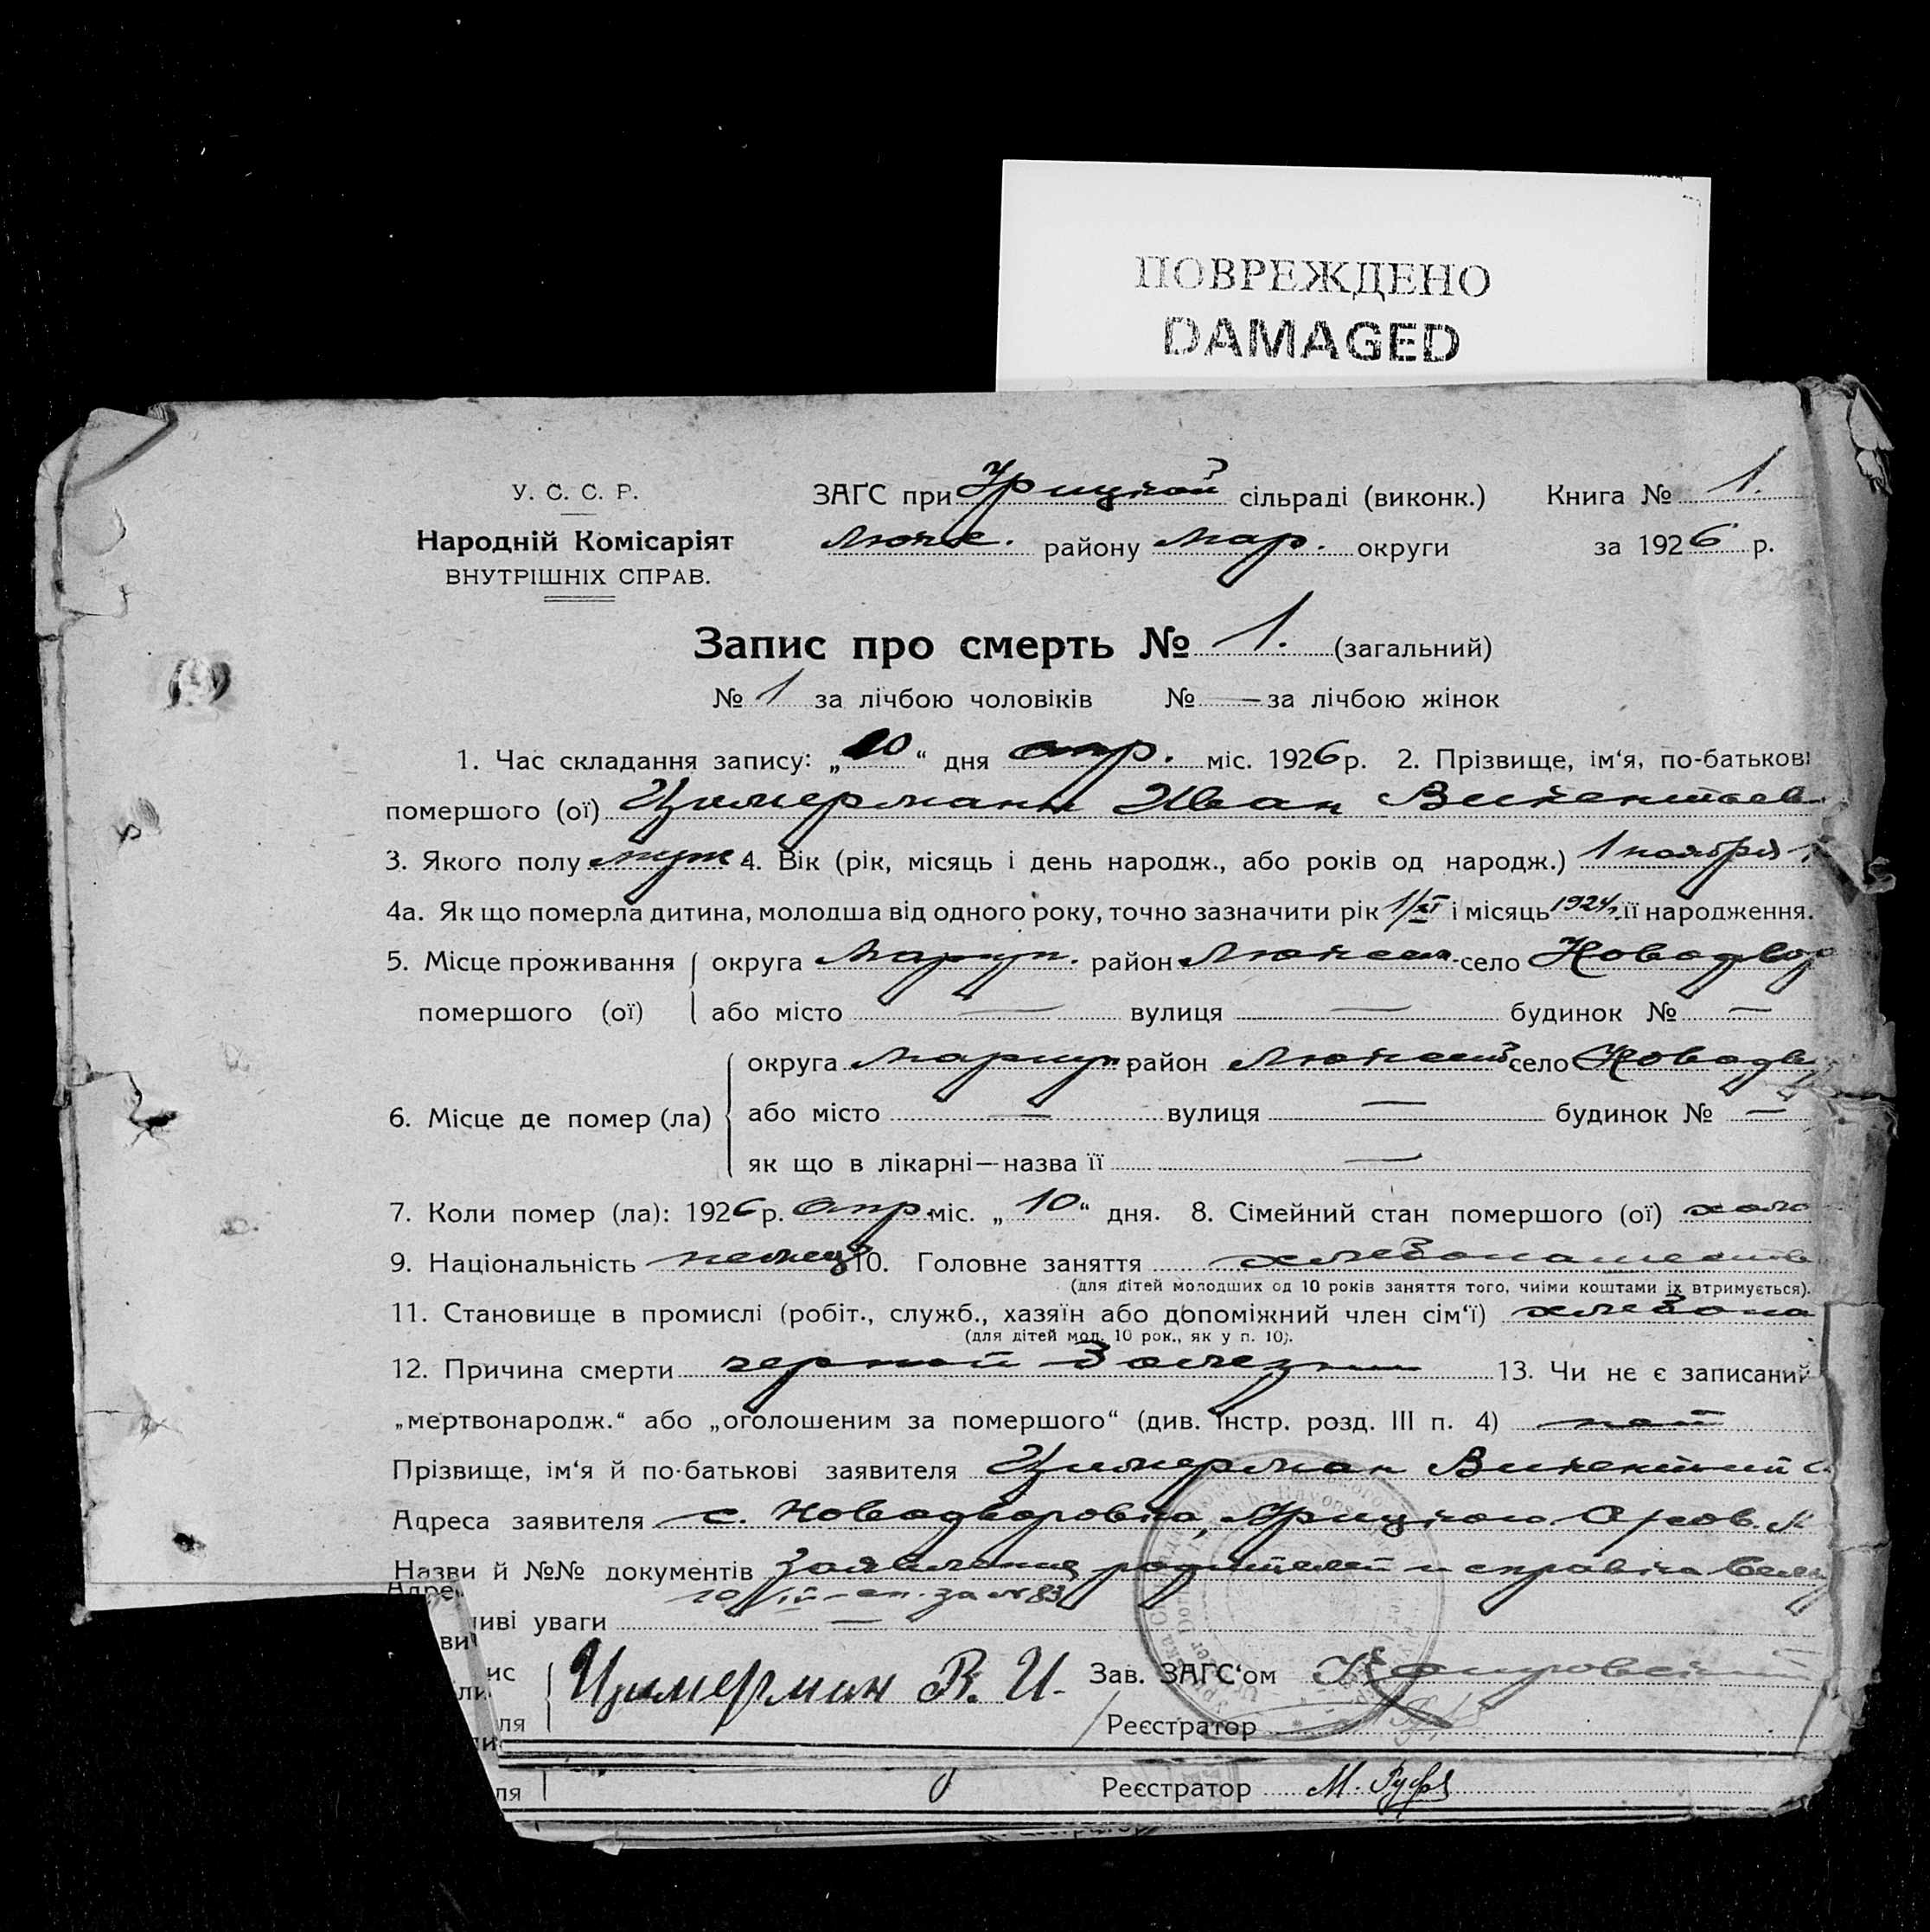 ПОВРЕЖДЕНО
DAMAGED
У. С. С. Р.
Народній Комісаріят
ВНУТРІШНІХ СПРАВ.
ЗАГС при Урицкой сільраді (виконк.) Книга № 1.
Люкс. району Мар. округи за 1926 р.
Запис про смерть № 1. (загальний)
№ 1 за лічбою чоловіків № — за лічбою жінок
1. Час складання запису: „10“ дня апр. міс. 1926 р. 2. Прізвище, ім‘я, по-батькові
помершого (ої) Цимерманн Иван Викентьев
3. Якого полу муж 4. Вік (рік, місяць і день народж., або років од народж.) 1 ноября
4а. Як що померла дитина, молодша від одного року, точно зазначити рік 1/XI і місяць 1924 г. її народження.
5. Місце проживання округа Мариуп. район Люксем. село Новодвор
помершого (ої) або місто — вулиця — будинок № —
6. Місце де помер (ла) округа Мариуп. район Люксем село Новодв
або місто — вулиця — будинок № —
як що в лікарні—назва її —
7. Коли помер (ла): 1926 р. апр. міс. „10“ дня. 8. Сімейний стан помершого (ої) холо
9. Національність немец 10. Головне заняття хлебопашеств
(для дітей молодших од 10 років заняття того, чиїми коштами їх втримується).
11. Становище в промислі (робіт., служб., хазяїн або допоміжний член сім‘ї) хлебопа
(для дітей мол. 10 рок., як у п. 10).
12. Причина смерти черной болезни 13. Чи не є записаний
„мертвонародж.“ або „оголошеним за помершого“ (див. інстр. розд. III п. 4)
Прізвище, ім‘я й по-батькові заявителя Цимерман Викентий
Адреса заявителя с. Новодворовка, Урицкого
Назви й №№ документів Заявление родителей и справка
за № 83
иві уваги —
Цимерман В. И. Зав. ЗАГС‘ом
Реєстратор
ля Реєстратор М.